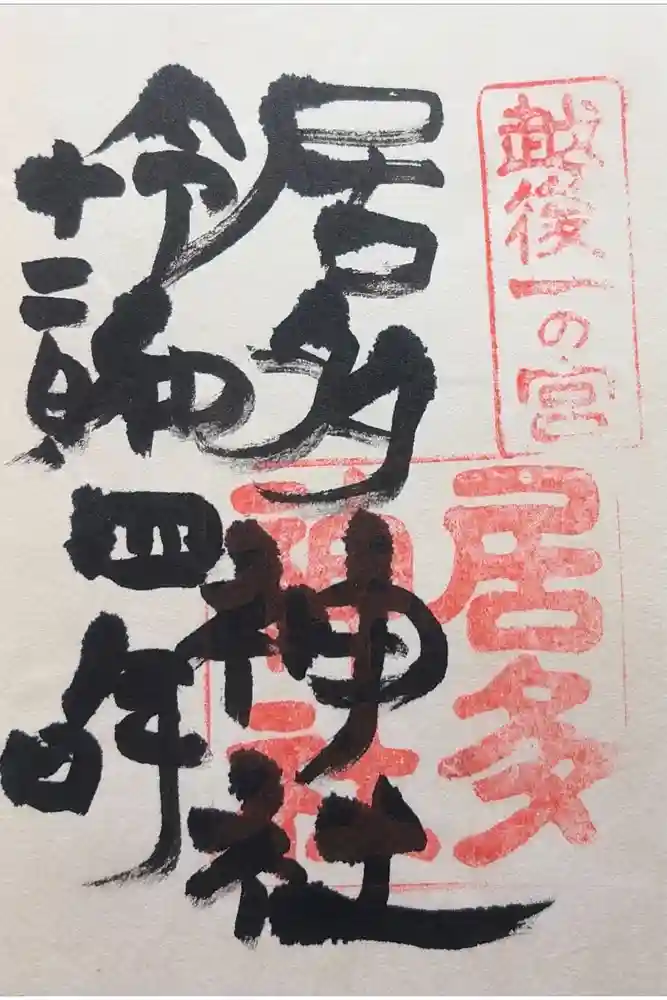 越後一の宮
居多神社
居多神社
令和四年
十二月
日